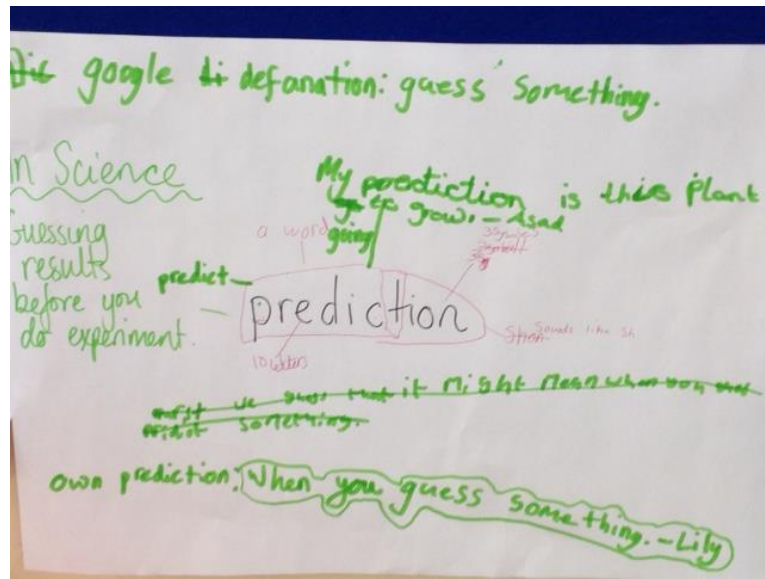 google defanation: guess something.
in Science
Guessing
results
before you
do experiment.
My prediction is this plant
going to grow. - Asad
a word
predict
prediction
10 letters
Sounds like sh
it might mean when you
something.
own prediction: When you guess something. - Lily